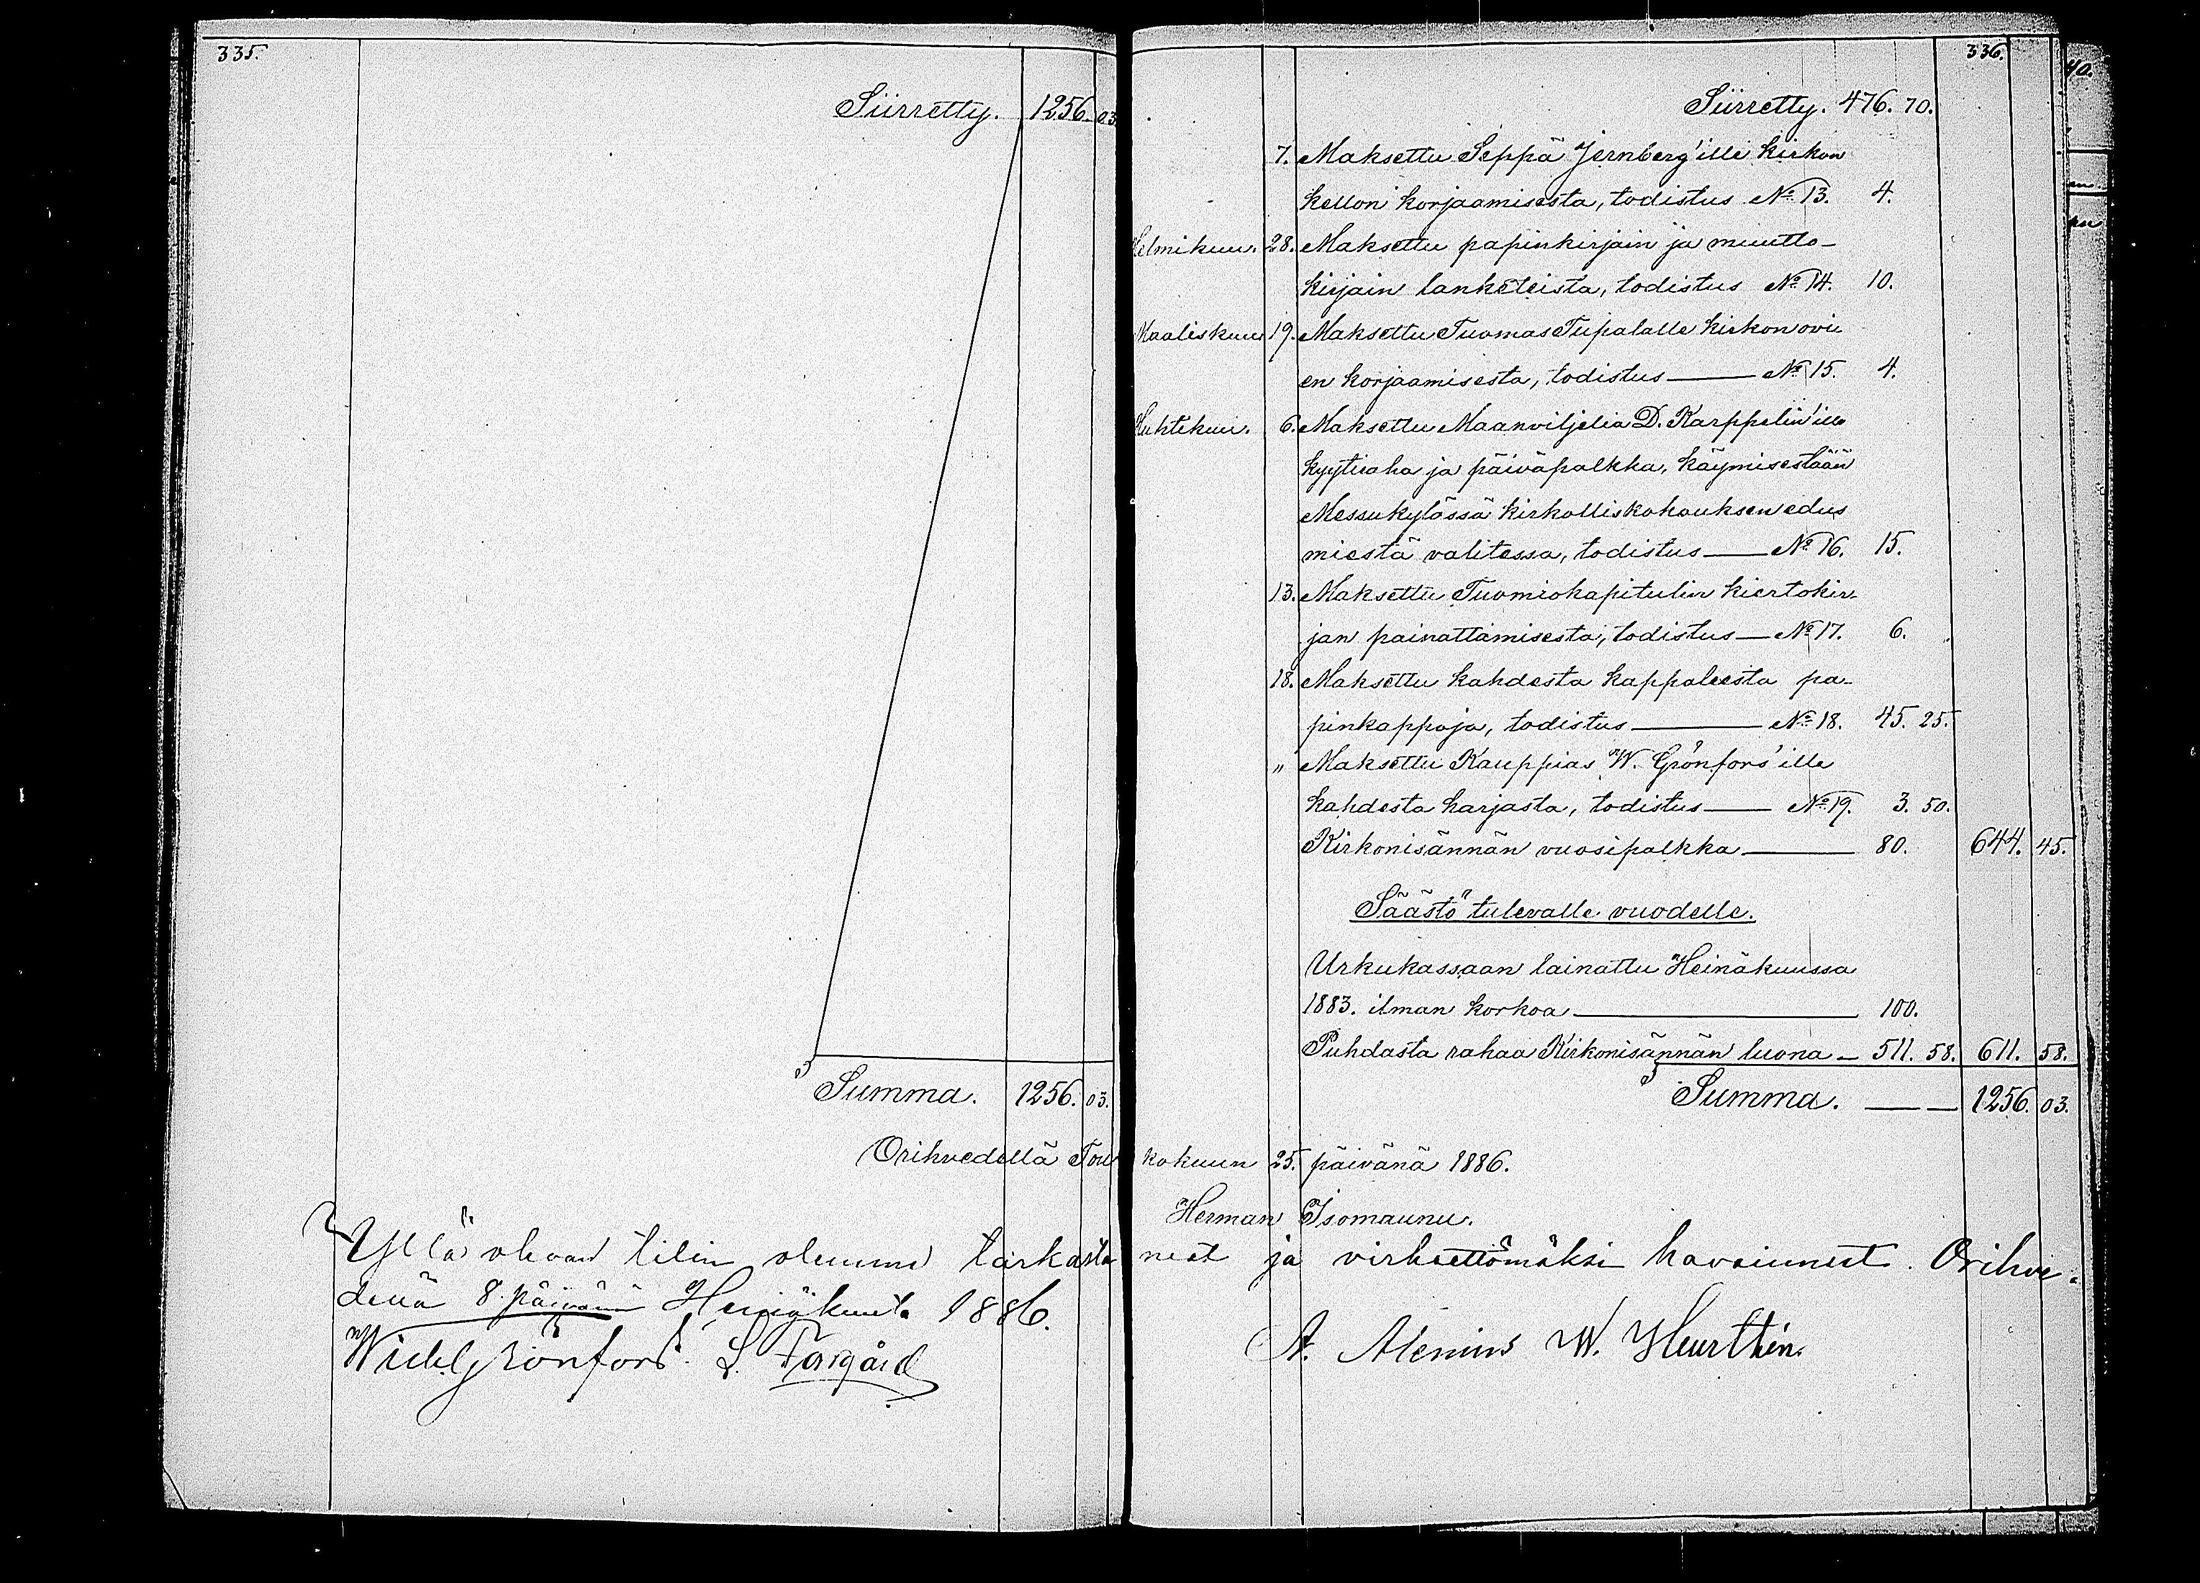 335.
Siirretty. 1256. 03.
Summa. 1256. 03.
336.
Siirretty. 476. 70.
7. Maksettu Seppä Jernberg'ille kirkon
kellon korjaamisesta, todistus No 13. 4.
Helmikuu. 28. Maksettu papinkirjain ja muutto-
kirjain lanketeista, todistus No 14. 10.
Maaliskuu 19. Maksettu Tuomas Tupalalle kirkon ovi-
en korjaamisesta, todistus — No 15. 4.
Huhtikuu. 6. Maksettu Maanviljelia D. Karppelin'ille
kyytiraha ja päiväpalkka, käymisestään
Messukylässä kirkolliskokouksen edus
miestä valitessa, todistus — No 16. 15.
13. Maksettu Tuomiokapitulin kiertokir-
jan painattamisesta, todistus — No 17. 6.
18. Maksettu kahdesta kappaleesta pa-
pinkappoja, todistus — No 18. 45. 25.
" Maksettu Kauppias W. Grönfors'ille
kahdesta harjasta, todistus — No 19. 3. 50.
Kirkonisännän vuosipalkka — 80. 644. 45.
Säästö tulevalle vuodelle.
Urkukassaan lainattu Heinäkuussa
1883. ilman korkoa — 100.
Puhdasta rahaa Kirkonisännän luona — 511. 58. 611. 58.
Summa. — — 1256. 03.
Orihvedellä Toukokuun 25. päivänä 1886.
Herman Isomaunu.
Yllä olevan tilin olemme tarkastaneet ja virheettömäksi havainneet. Orihve-
dellä 8. päivänä Heinäkuuta 1886.
Wilh Grönfors. L. Forsgård A. Alenius W. Heurthén.